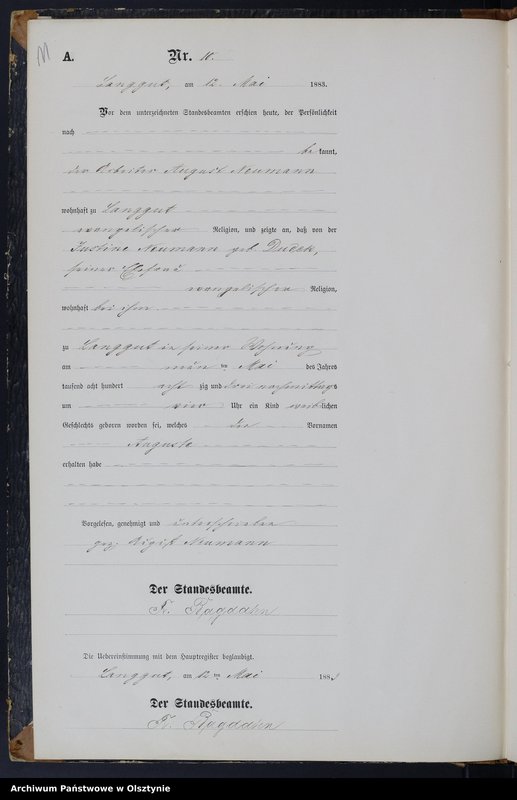 A.
Nr. 10.
Langgut, am 12. Mai 1883.
Vor dem unterzeichneten Standesbeamten erschien heute, der Persönlichkeit
nach
be kannt,
der Arbeiter August Neumann
wohnhaft zu Langgut
evangelischer Religion, und zeigte an, daß von der
Justine Neumann geb Dudek,
seiner Ehefrau
evangelischer Religion,
wohnhaft bei ihm
zu Langgut in seiner Wohnung
am Mai des Jahres
tausend acht hundert acht zig und drei nachmittags
um vier Uhr ein Kind weiblichen
Geschlechts geboren worden sei, welches den Vornamen
Auguste
erhalten habe
Vorgelesen, genehmigt und unterschrieben
gez. Neumann
Der Standesbeamte.
Fr. Ragdahn
Die Uebereinstimmung mit dem Hauptregister beglaubigt.
Langgut, am 12 ten Mai 1883
Der Standesbeamte.
Fr. Ragdahn
Archiwum Państwowe w Olsztynie